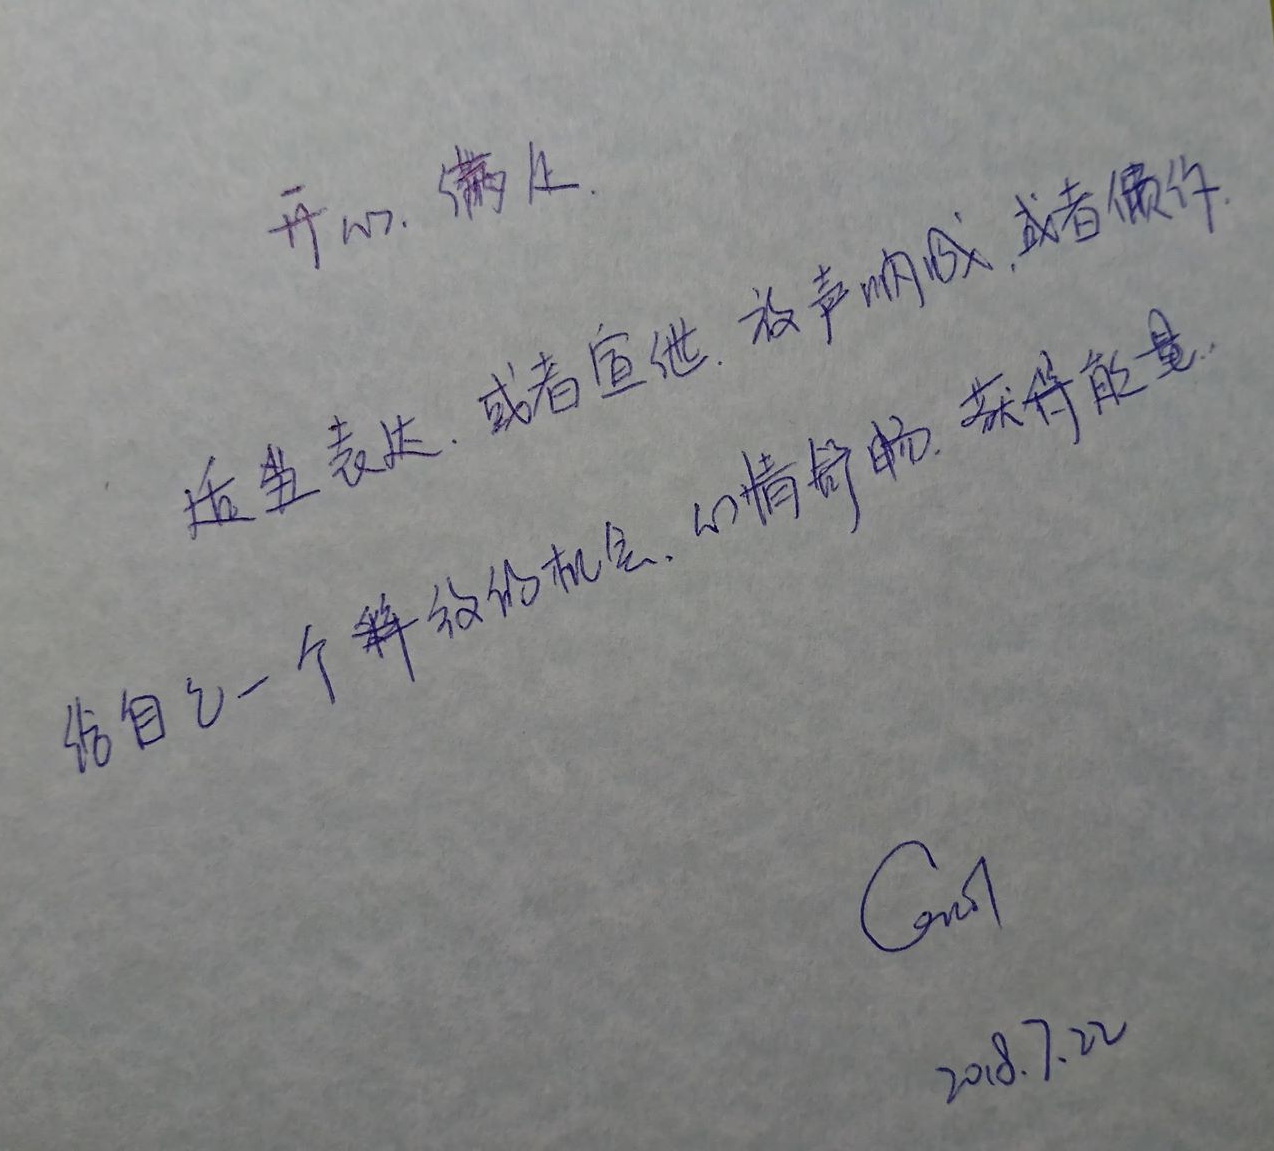 开心、满足.
适当表达.或者宣泄.放声呐喊.或者倾诉.
给自己一个释放的机会、心情舒畅.获得能量..
Carol
2018.7.22